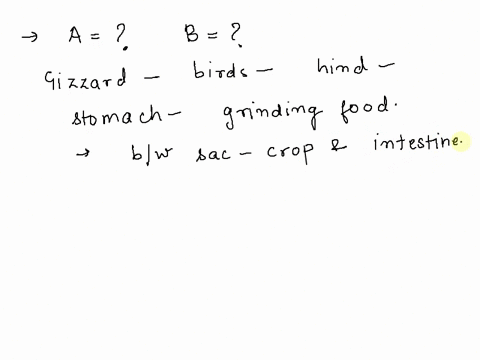 → A = ? B = ?
Gizzard - birds - hind -
stomach - grinding food.
→ b/w sac - crop & intestine.